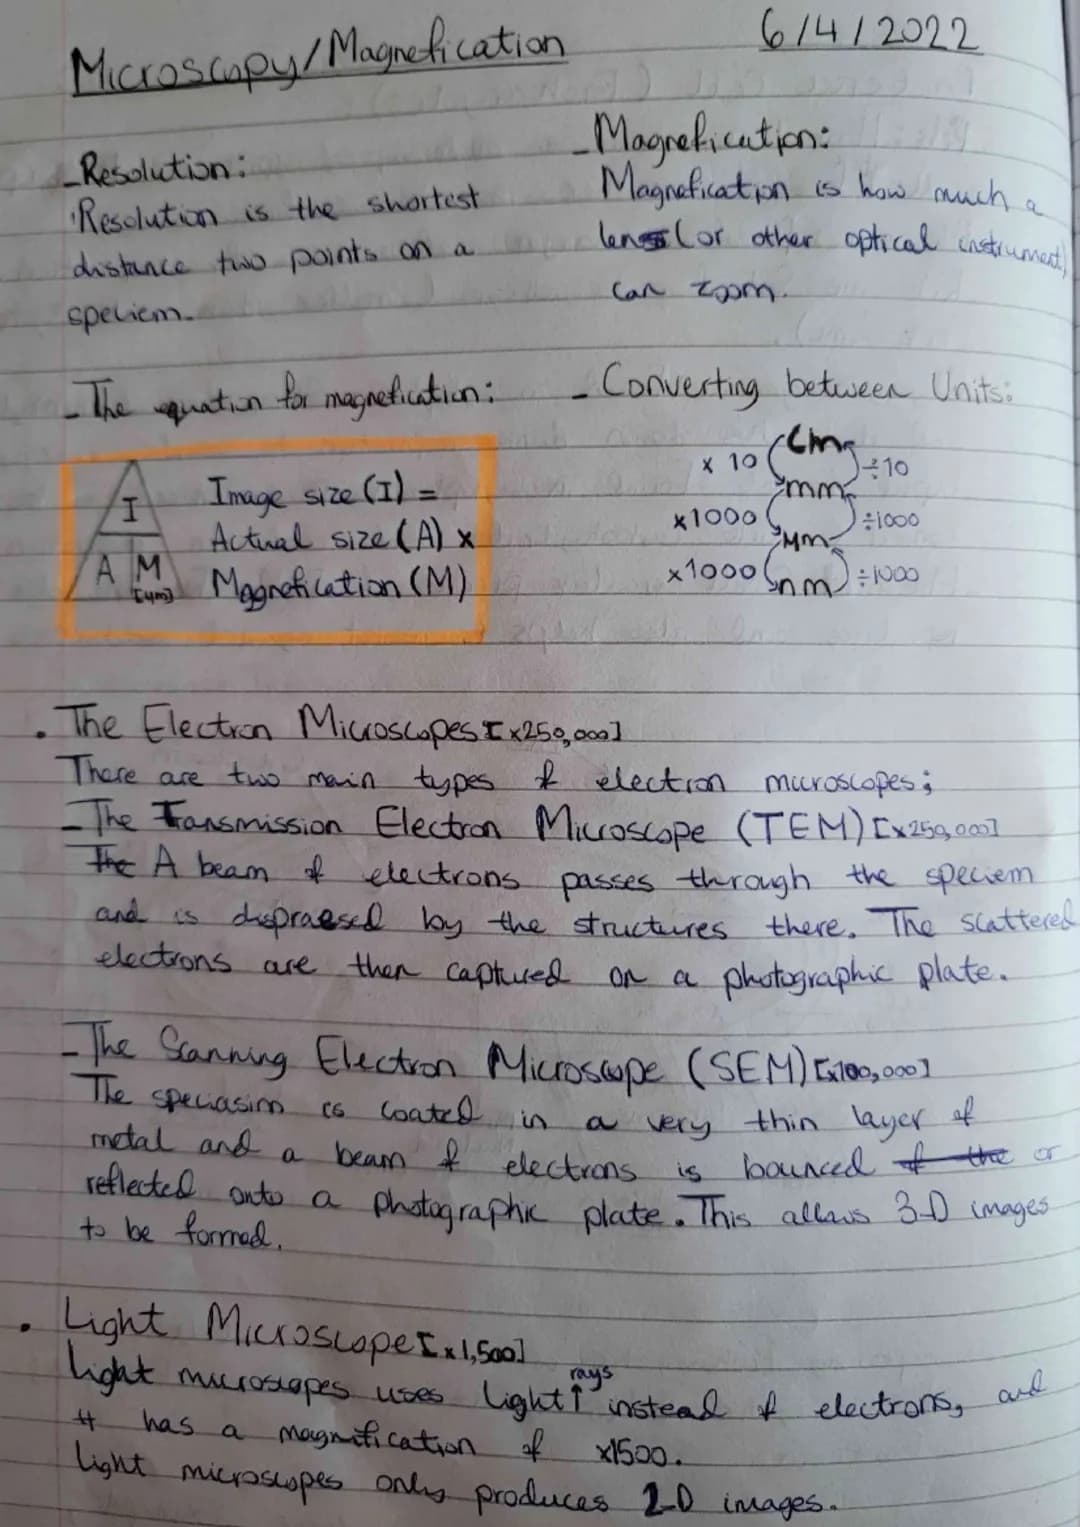 Microscopy/Magnefication
6/4/2022
- Resolution:
Resolution is the shortest
distance two points on a
speciem.
- Magnefication:
Magnefication is how much a
lens (or other optical instrument)
can zoom.
- The equation for magnefication:
I
A M
[μm]
Image size (I) =
Actual size (A) x
Magnefication (M)
- Converting between Units:
cm
x 10 ÷10
mm
x1000 ÷1000
μm
x1000 ÷1000
nm
• The Electron Microscopes [x250,000]
There are two main types of electron microscopes;
- The Transmission Electron Microscope (TEM) [x250,000]
The A beam of electrons passes through the speciem
and is dispraesed by the structures there. The scattered
electrons are then captured on a photographic plate.
- The Scanning Electron Microscope (SEM) [x100,000]
The speciasim is coated in a very thin layer of
metal and a beam of electrons is bounced of the or
reflected onto a photographic plate. This allows 3-D images
to be formed.
• Light Microscope [x1,500]
rays
Light microscopes uses light ↑ instead of electrons, and
it has a magnification of x1500.
Light microscopes only produces 2-D images.